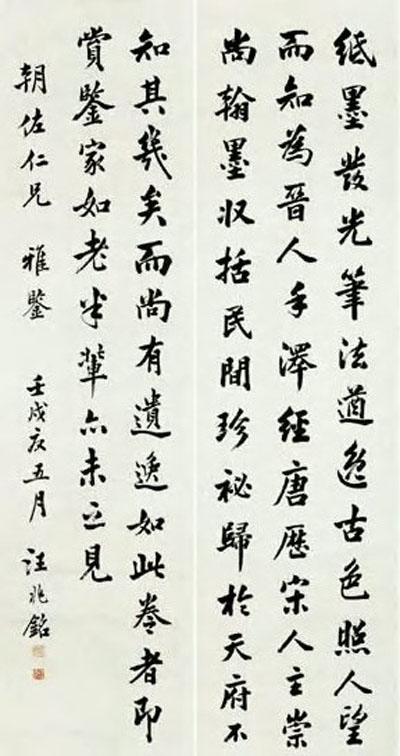 紙墨發光筆法遒逸古色照人望
而知為晉人手澤經唐歷宋人主崇
尚翰墨収括民間珍祕歸於天府不
知其幾矣而尚有遺逸如此卷者即
賞鑒家如老米輩亦未之見
朝佐仁兄 雅鑒 壬戌夏五月 汪兆銘